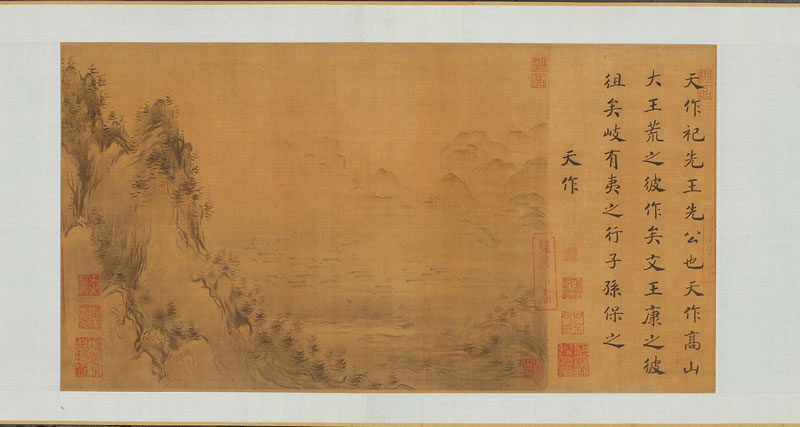 天作祀先王先公也天作高山
大王荒之彼作矣文王康之彼
徂矣岐有夷之行子孫保之
天作